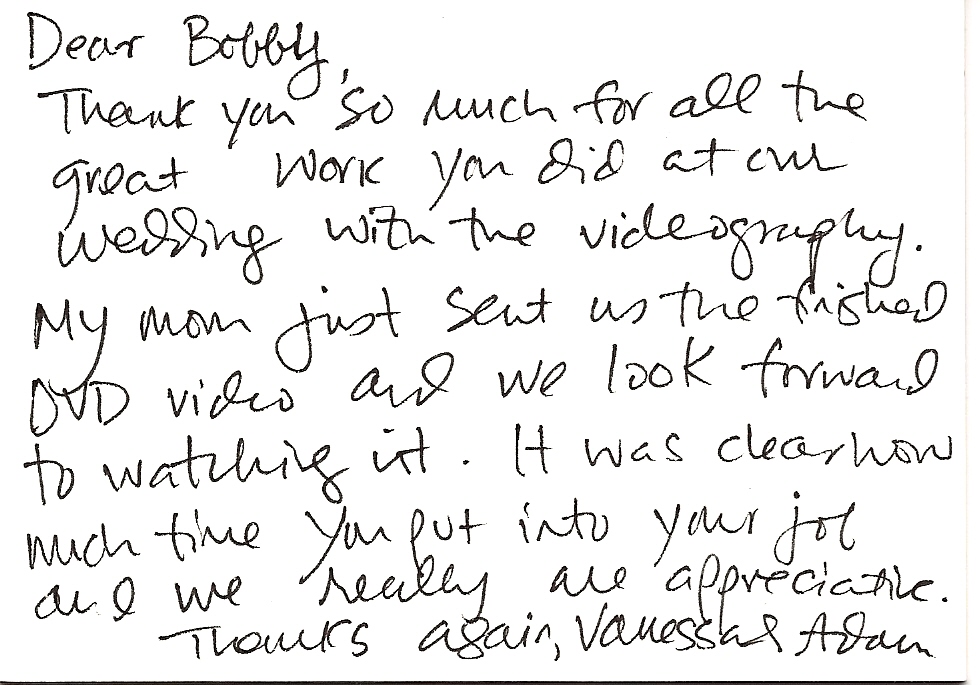 Dear Bobby,
Thank you so much for all the
great work you did at our
wedding with the videography.
My mom just sent us the finished
DVD video and we look forward
to watching it. It was clear how
much time you put into your job
and we really are appreciative.
Thanks again, Vanessa & Adam